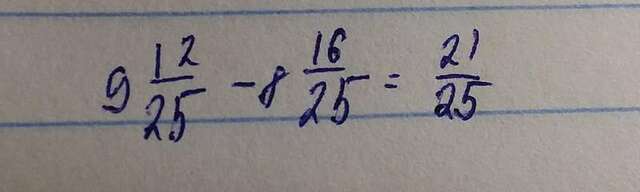 9 12/25 - 8 16/25 = 21/25